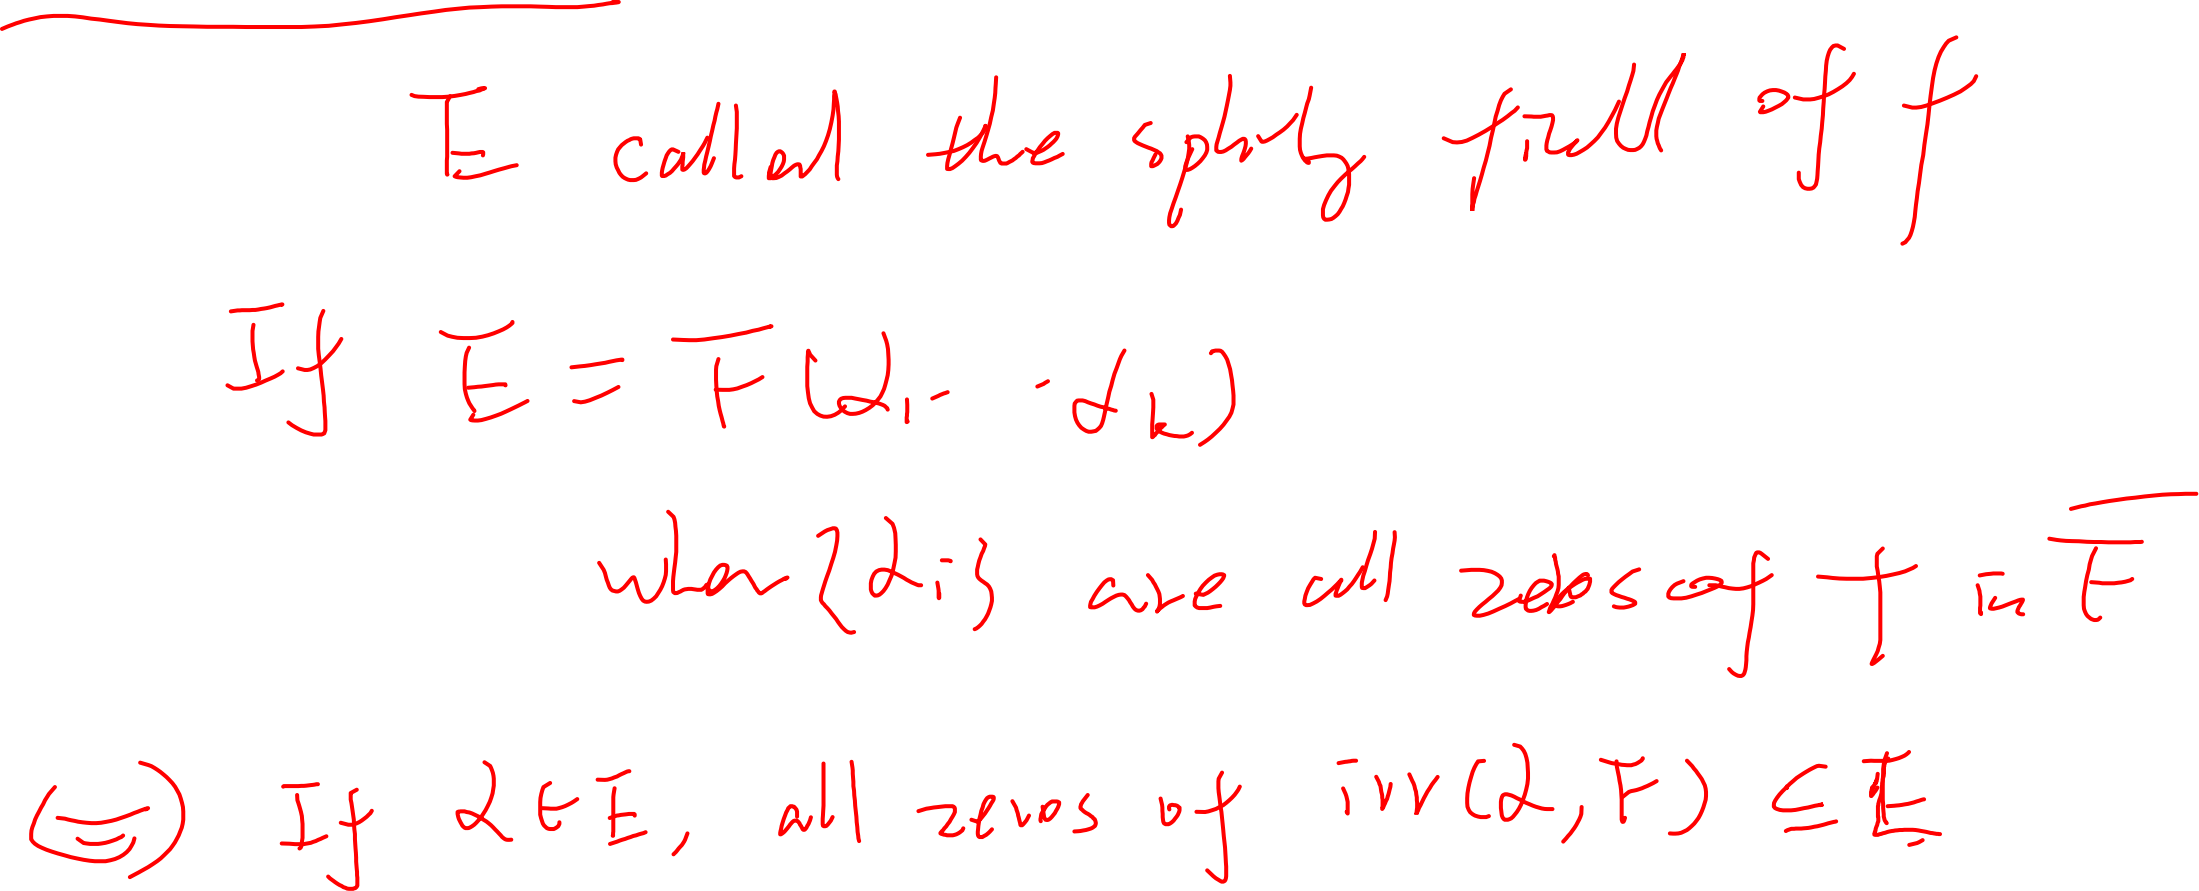 E called the splitting field of f
If E = F(α₁ ‑ ‑ αₖ)
when {αᵢ} are all zeros of f in E̅
(⇔) If α ∈ E, all zeros of irr(α, F) ⊆ E